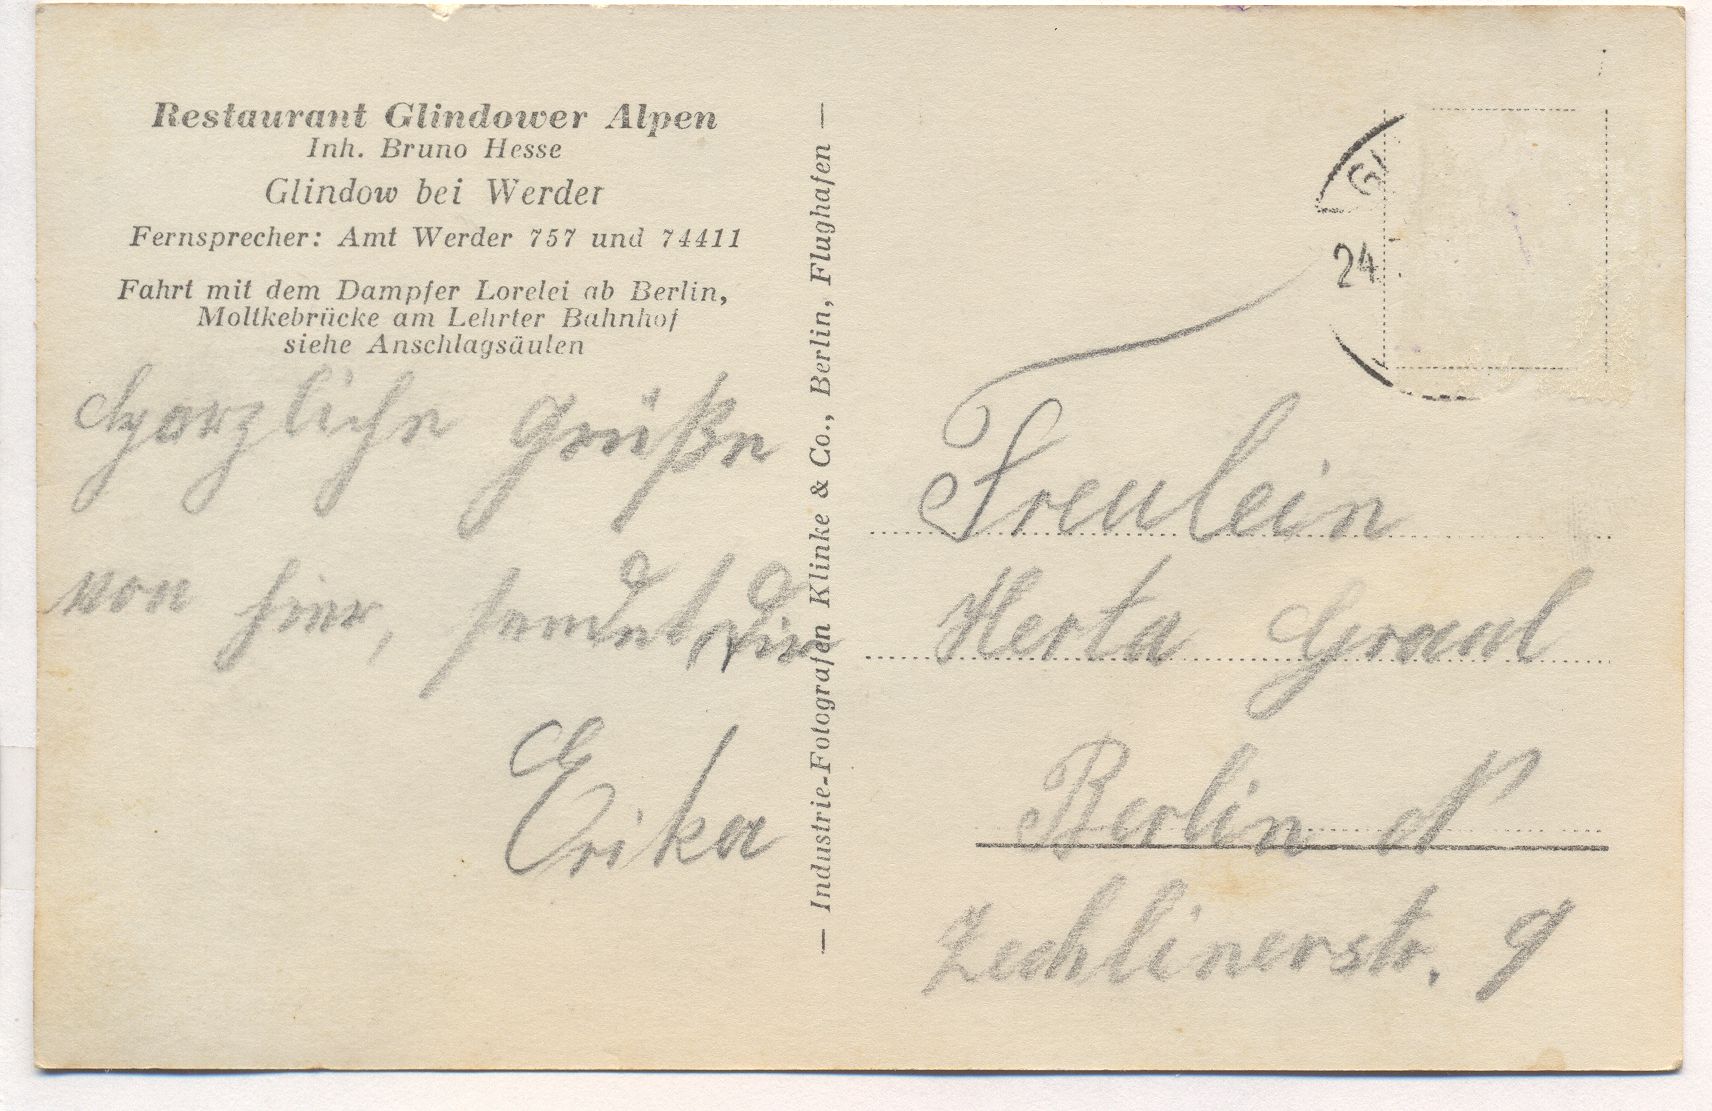 Restaurant Glindower Alpen
Inh. Bruno Hesse
Glindow bei Werder
Fernsprecher: Amt Werder 757 und 74411
Fahrt mit dem Dampfer Lorelei ab Berlin,
Moltkebrücke am Lehrter Bahnhof
siehe Anschlagsäulen
Herzliche Grüße
von hier, sendet Dir
Erika
— Industrie-Fotografen Klinke & Co., Berlin, Flughafen —
Gl
24
Freulein
Herta Graul
Berlin N
Zechlinerstr. 9